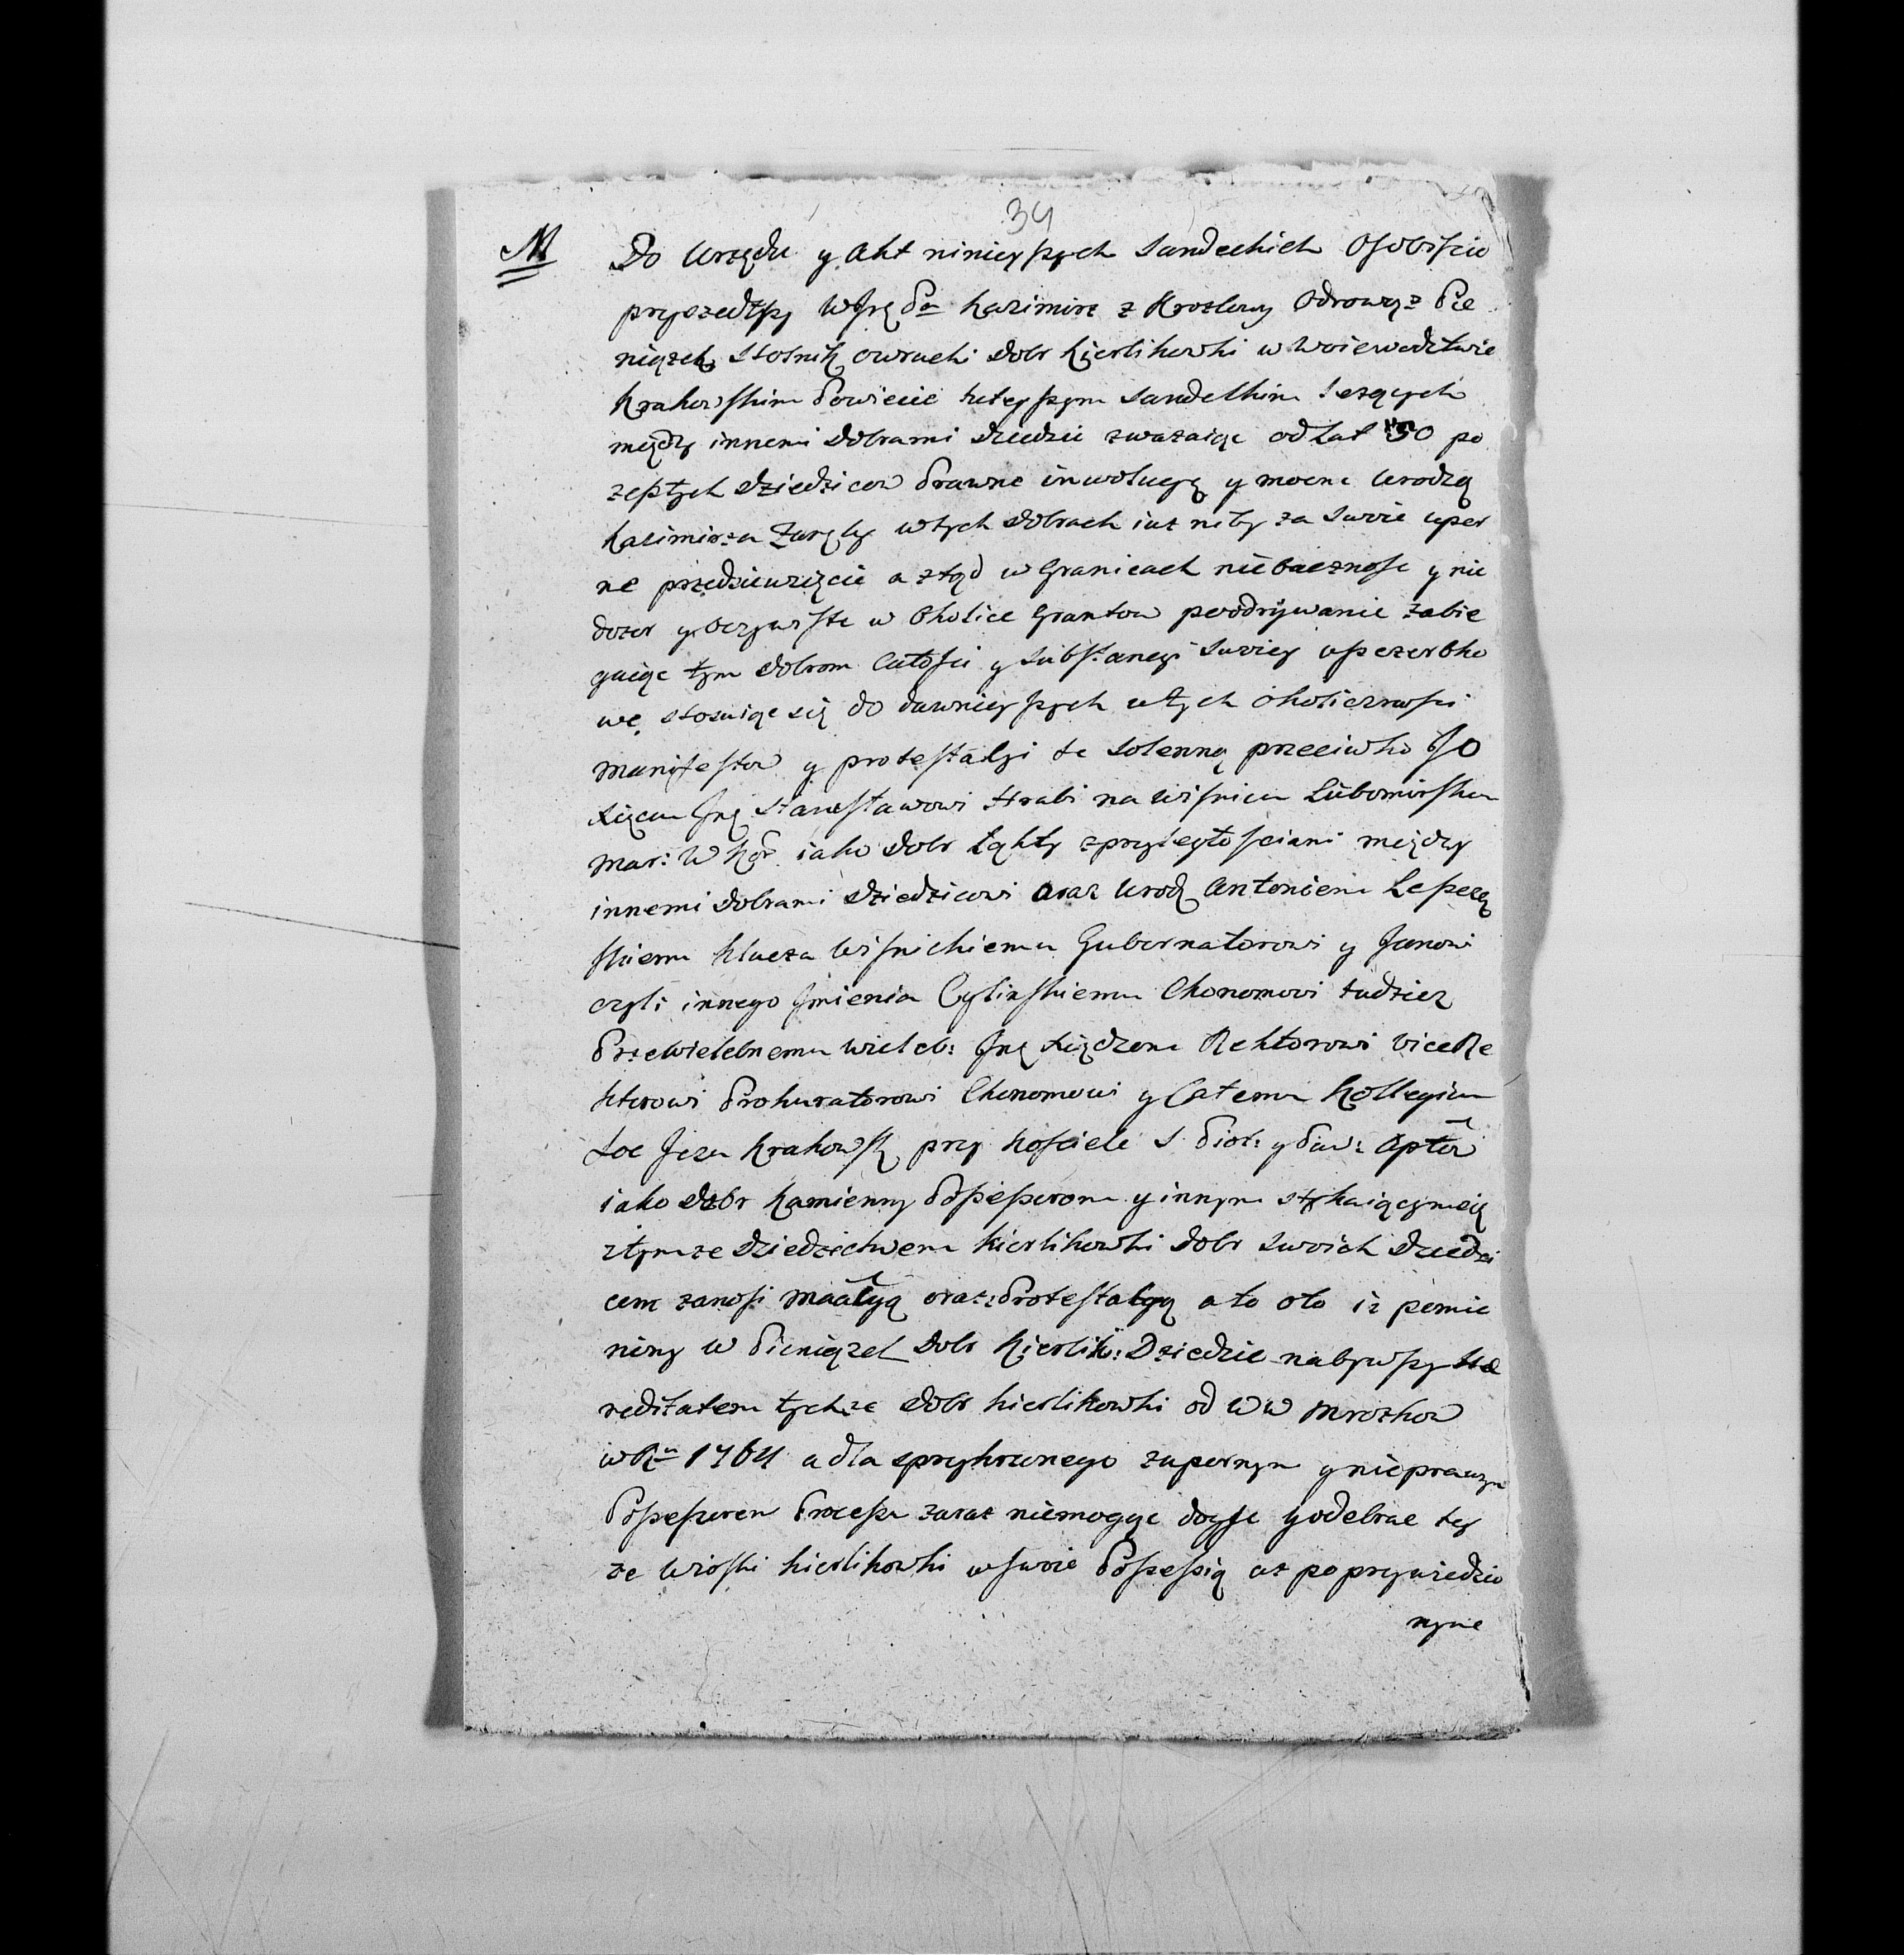 34
M Do Urzędu y Akt ninieyszych Sandeckich Osobiście
przyszedłszy WJmć Pn Kazimirz z Krozlowy Odrowąż Pie
niązek Stolnik owrucki Dobr Kierlikowki w Woiewodztwie
Krakowskim Powiecie tuteyszym Sandeckim Lezących
między innemi Dobrami Dziedzic zwazaiąc od Lat 30 po
zeszłych Dziedzicow Prawne inwolucyą y mocne Urodzą
Kazimirza Zaręby w tych Dobrach iuz niby za Swoie uper
ne przedsiewzięcie a ztąd w Granicach niebaczność y nie
dozor y Oczywiste w Okolice Grantow poodrywanie zabie
gaiąc tym Dobrom Całości y Substancyi Swoiey uszczerbko
we, stosuiąc się do dawnieyszych w tych okoliczności
Manifestow y protestacyi te Solenną przeciwko JO
Xięciu Jmć Stanisławowi Hrabi na Wiśniczu Lubomirskiu
Mar: W Kor: iako Dobr Łąkty z przyległościami między
innemi Dobrami Dziedzicowi oraz Urodz Antoniemu Leszczy
skiemu Klucza Wiśnickiemu Gubernatorowi y Janowi
czyli innego Jmienia Cyglinskiemu Ekonomowi tudziez
Przewielebnemu Wieleb: Jmć Xiędzem Rektorowi ViceRe
ktorowi Prokuratorowi Ekonomowi y Całemu Kollegium
Soc Jezu Krakowsk przy Kościele S. Piotr: y Paw: Apłow
iako Dobr Kamienny Possessorom y innym stykaiącym się
z tymze Dziedzictwem Kierlikowki Dobr Swoich Dziedzi
com zanosi Maacyą oraz Protestacyą a to oto iz pomie
niony W Pieniązek Dobr Kierlik: Dziedzic nabywszy Hæ
reditatem tychze Dobr Kierlikowki od WW Mrozkow
w Rn 1764 a dla sprzykrzonego z upornym y nieprawym
Possessorem Processu zaraz niemogąc doyść y odebrac tey
ze Wioski Kierlikowki w swoie Possessią az po przywiedzio
nyne